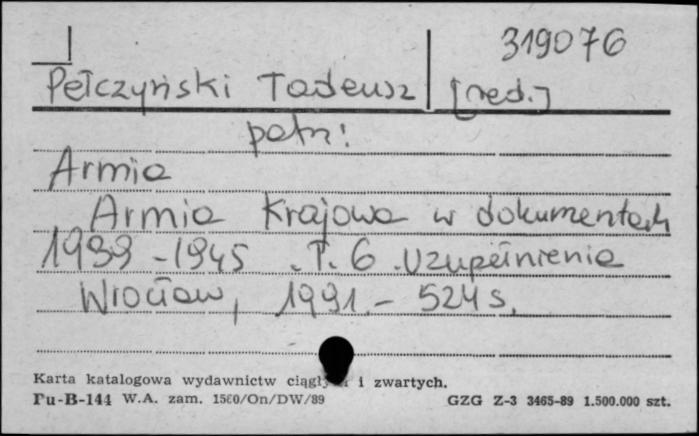 319076
Pełczyński Tadeusz [red.]
patrz:
Armia
Armia Krajowa w dokumentach
1939-1945. T. 6. Uzupełnienia
Wrocław, 1991. - 524 s.
Karta katalogowa wydawnictw i zwartych.
Pu-B-144 W.A. zam. 1560/On/DW/89 GZG Z-3 3465-89 1.500.000 szt.